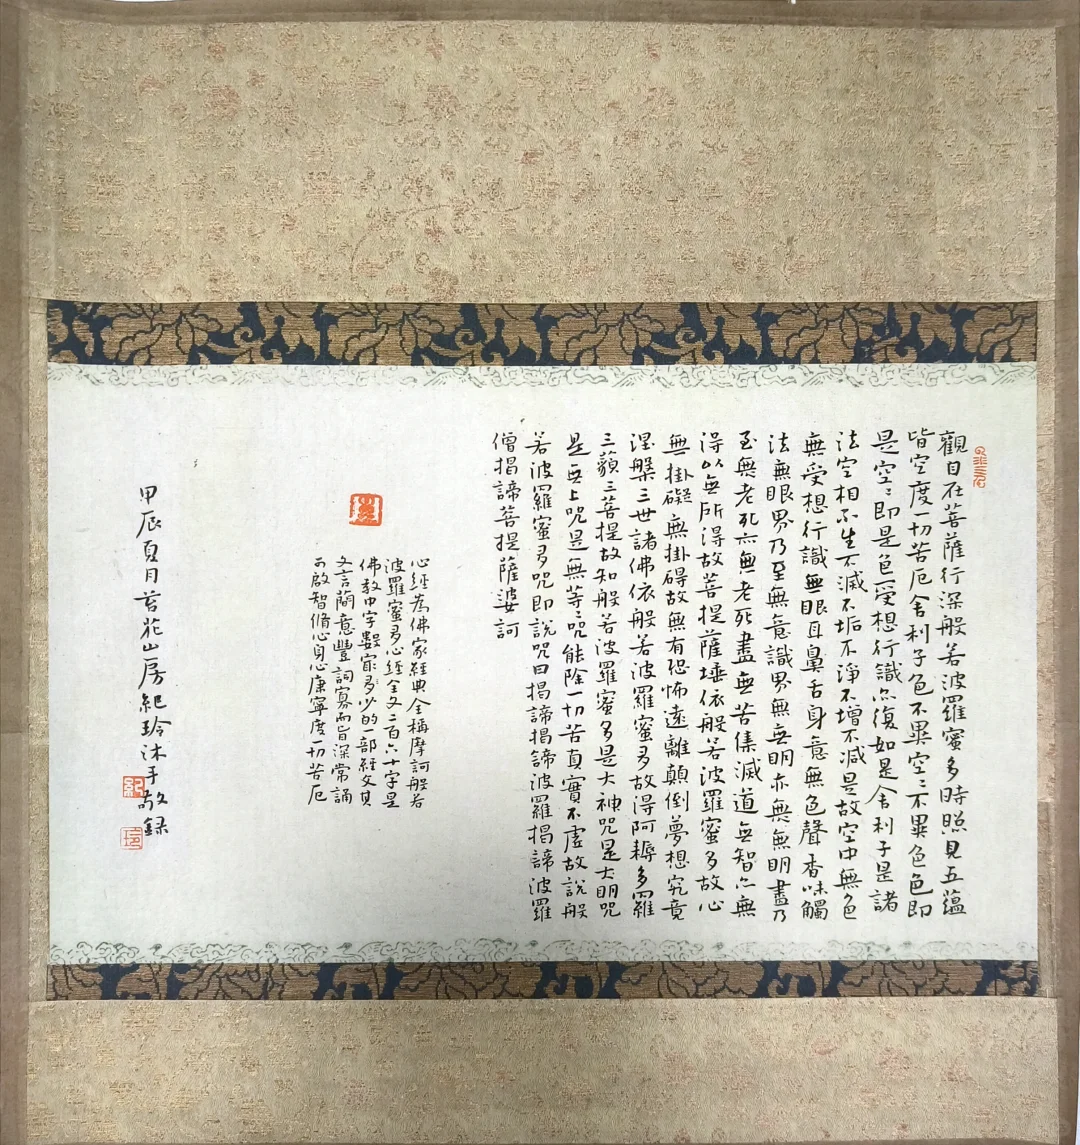 觀自在菩薩行深般若波羅蜜多時照見五蘊
皆空度一切苦厄舍利子色不異空〻不異色色即
是空〻即是色受想行識亦復如是舍利子是諸
法空相不生不滅不垢不淨不增不減是故空中無色
無受想行識無眼耳鼻舌身意無色聲香味觸
法無眼界乃至無意識界無無明亦無無明盡乃
至無老死亦無老死盡無苦集滅道無智亦無
得以無所得故菩提薩埵依般若波羅蜜多故心
無掛礙無掛碍故無有恐怖遠離顛倒夢想究竟
涅槃三世諸佛依般若波羅蜜多故得阿耨多羅
三藐三菩提故知般若波羅蜜多是大神咒是大明咒
是無上咒是無等〻咒能除一切苦真實不虛故說般
若波羅蜜多咒即說咒曰揭諦揭諦波羅揭諦波羅
僧揭諦菩提薩婆訶
心經為佛家經典全稱摩訶般若
波羅蜜多心經全文二百六十字是
佛教中字數最少的一部經文其
文言簡意豐詞寡而旨深常誦
可啟智修心身心康寧度一切苦厄
甲辰夏月苔花山房紀玲沐手敬録
紀
玲